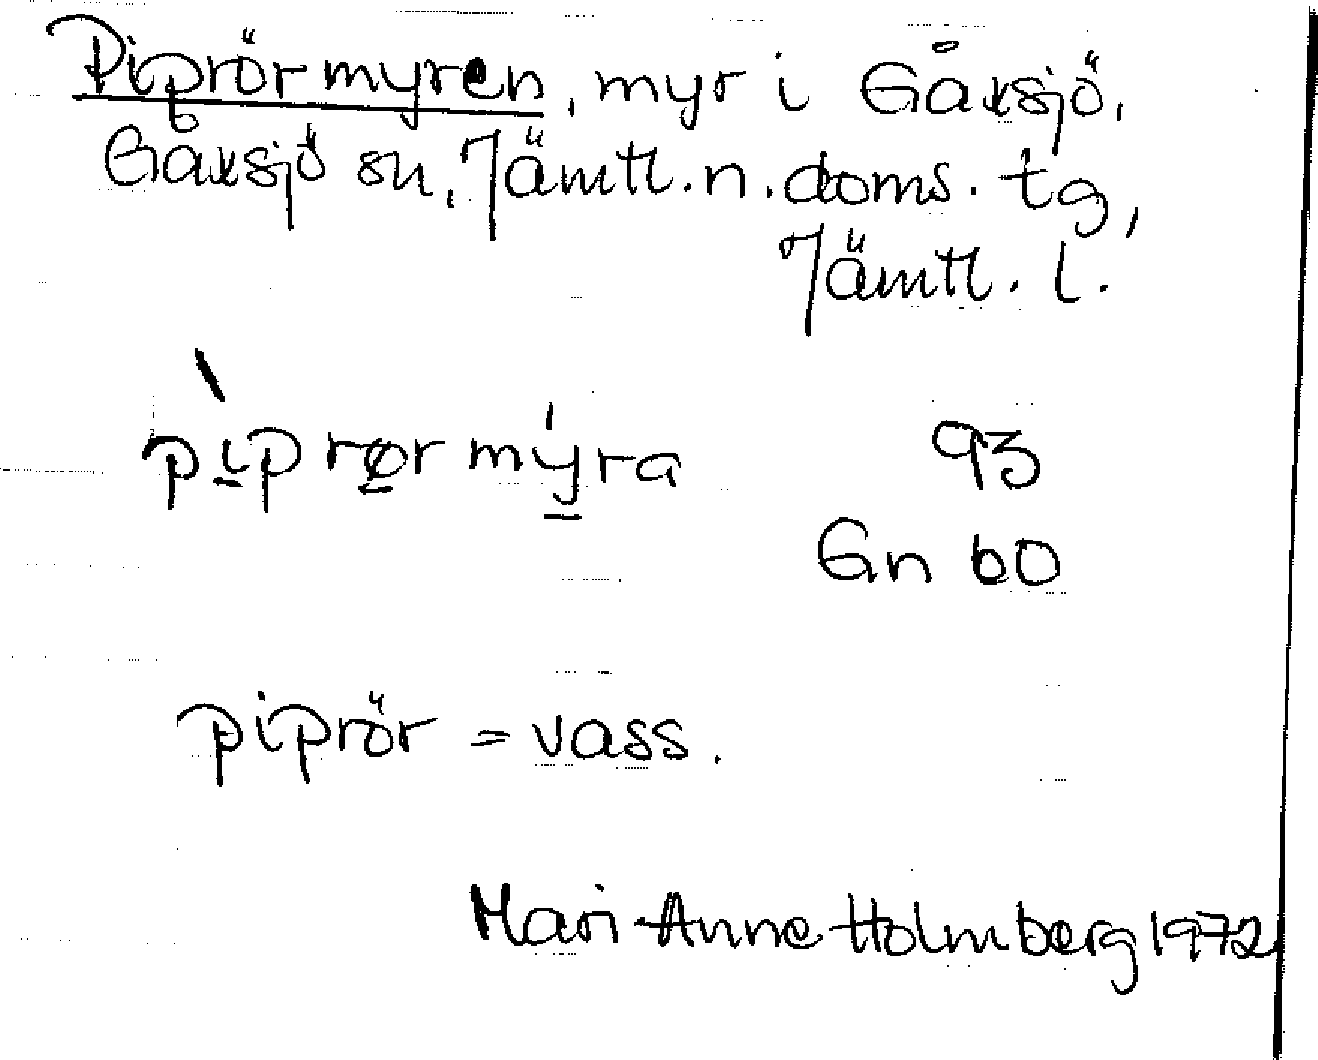 Piprörmyren, myr i Gåxsjö,
Gåxsjö sn, Jämtl. n. doms. tg,
Jämtl. l.
pìprørmýra 93
Gn 60
piprör = vass.
Mari-Anne Holmberg 1972